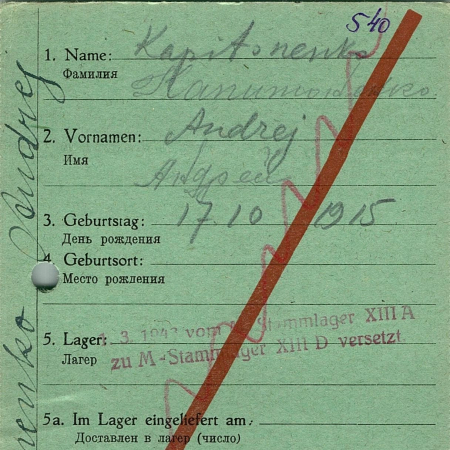 540
1. Name: Kapitonenko
Фамилия Капитоненко
2. Vornamen: Andrej
Имя Андрей
3. Geburtstag: 17.10 1915
День рождения
4. Geburtsort:
Место рождения
5. Lager: 3. 194 vom Stammlager XIII A
Лагер zu M-Stammlager XIII D versetzt.
5a. Im Lager eingeliefert am:
Доставлен в лагер (число)
enko Andrej